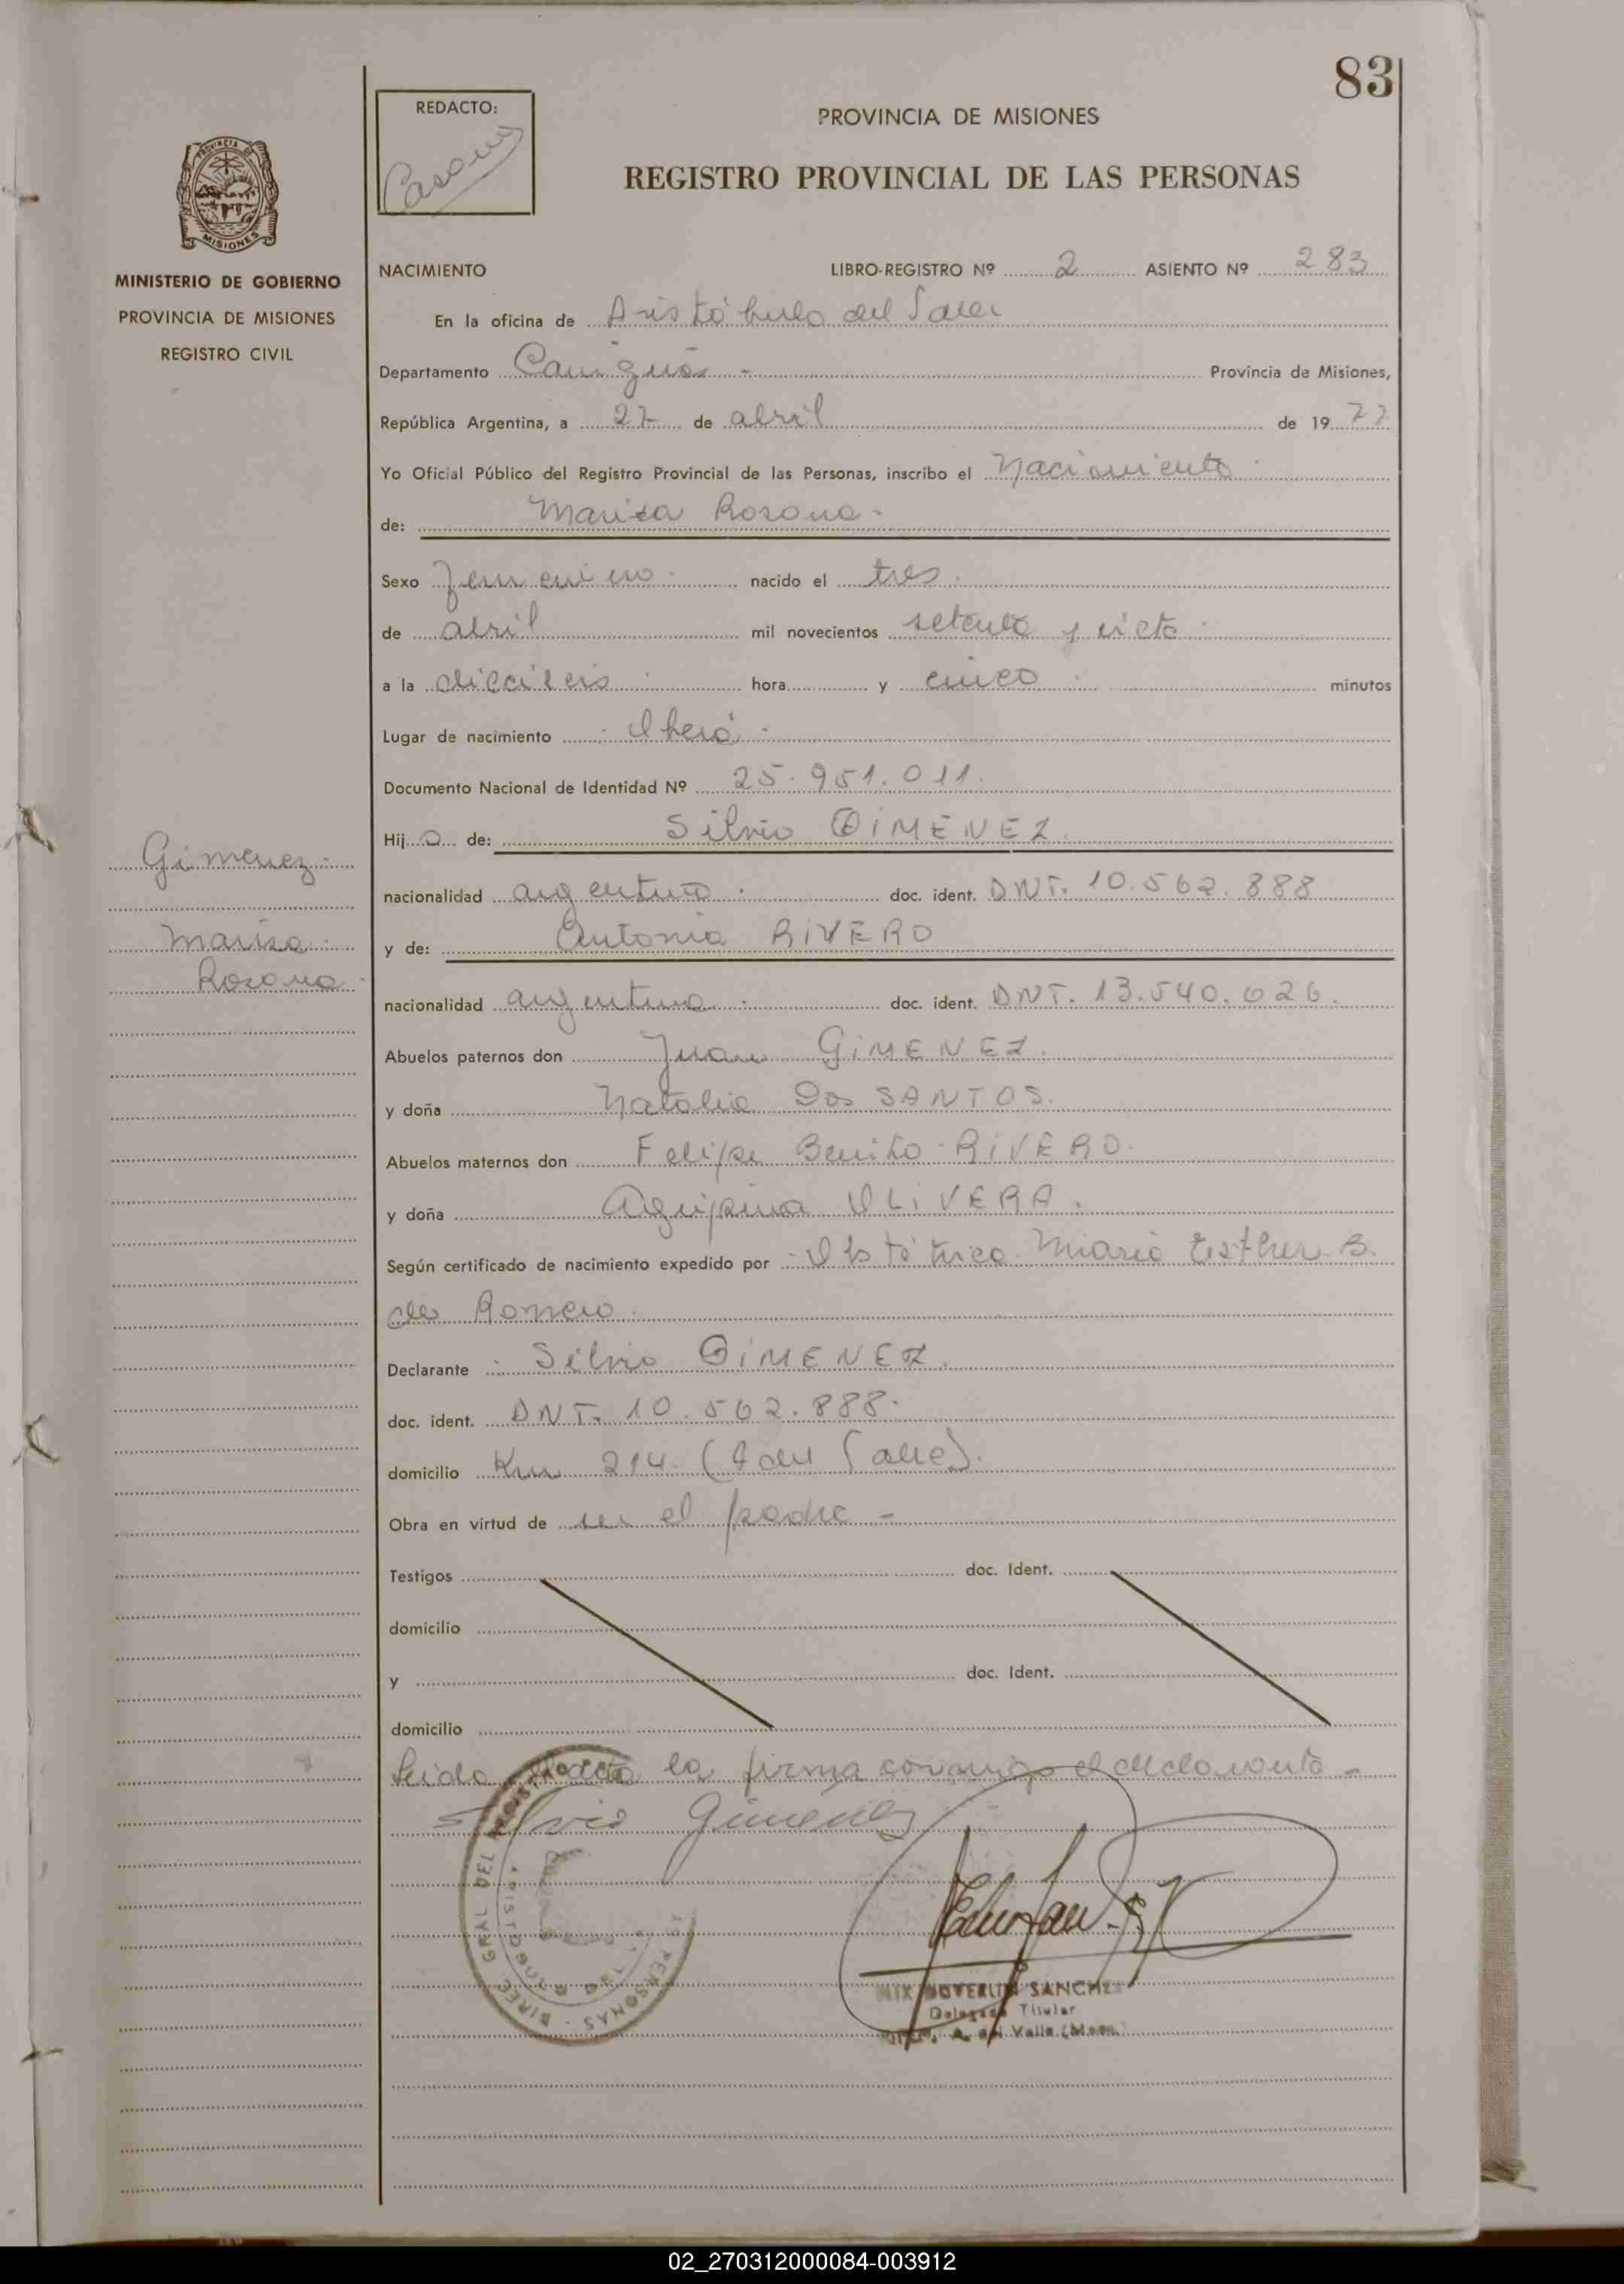 83
REDACTO:
PROVINCIA DE MISIONES
REGISTRO PROVINCIAL DE LAS PERSONAS
PROVINCIA DE
MISIONES
MINISTERIO DE GOBIERNO
PROVINCIA DE MISIONES
REGISTRO CIVIL
NACIMIENTO LIBRO-REGISTRO Nº 2 ASIENTO Nº 283
En la oficina de Aristóbulo del Valle
Departamento Cainguás - Provincia de Misiones,
República Argentina, a 27 de abril de 19 77
Yo Oficial Público del Registro Provincial de las Personas, inscribo el Nacimiento
de: Marisa Rosana -
Sexo Femenino nacido el tres
de abril mil novecientos setenta y siete
a la dieciseis hora y cinco minutos
Lugar de nacimiento Oberá
Documento Nacional de Identidad Nº 25.951.011.
Hij a de: Silvio GIMENEZ
nacionalidad argentino doc. ident. DNI. 10.562.888
y de: Antonia RIVERO
nacionalidad argentina doc. ident. DNI. 13.540.026.
Abuelos paternos don Juan GIMENEZ.
y doña Natalia Dos SANTOS.
Abuelos maternos don Felipe Benito RIVERO.
y doña Agripina OLIVERA.
Según certificado de nacimiento expedido por Obstétrica Maria Esther B.
de Romero.
Declarante Silvio GIMENEZ.
doc. ident. DNI. 10.562.888.
domicilio Km 214. (A del Valle).
Obra en virtud de ser el padre -
Testigos doc. Ident.
domicilio
y doc. Ident.
domicilio
Leida el acta la firma conmigo el declarante -
Silvio Gimenez
Gimenez
Marisa
Rosana
SANCHEZ
Titular
A. del Valle (Mnes.)
02_270312000084-003912